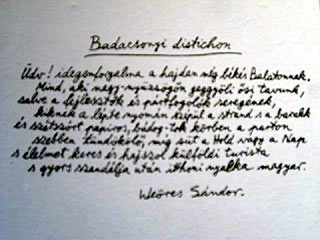 Badacsonyi distichon
Üdv! idegenforgalma a hajdan még békés Balatonnak.
Mind, aki nagy-nyüzsögőn gaggyóli ősi tavunk,
salve a fejlesztők és pártfogolók seregének,
kiknek a lépte nyomán szépül a strand s a barakk
és szétszórt papiros, bádog-tok körben a parton
szebben tündöklő, míg süt a Hold vagy a Nap
s élelmet keres és hajszol külföldi turista
s gyors szandálja után itthoni nyalka magyar.
Weöres Sándor.